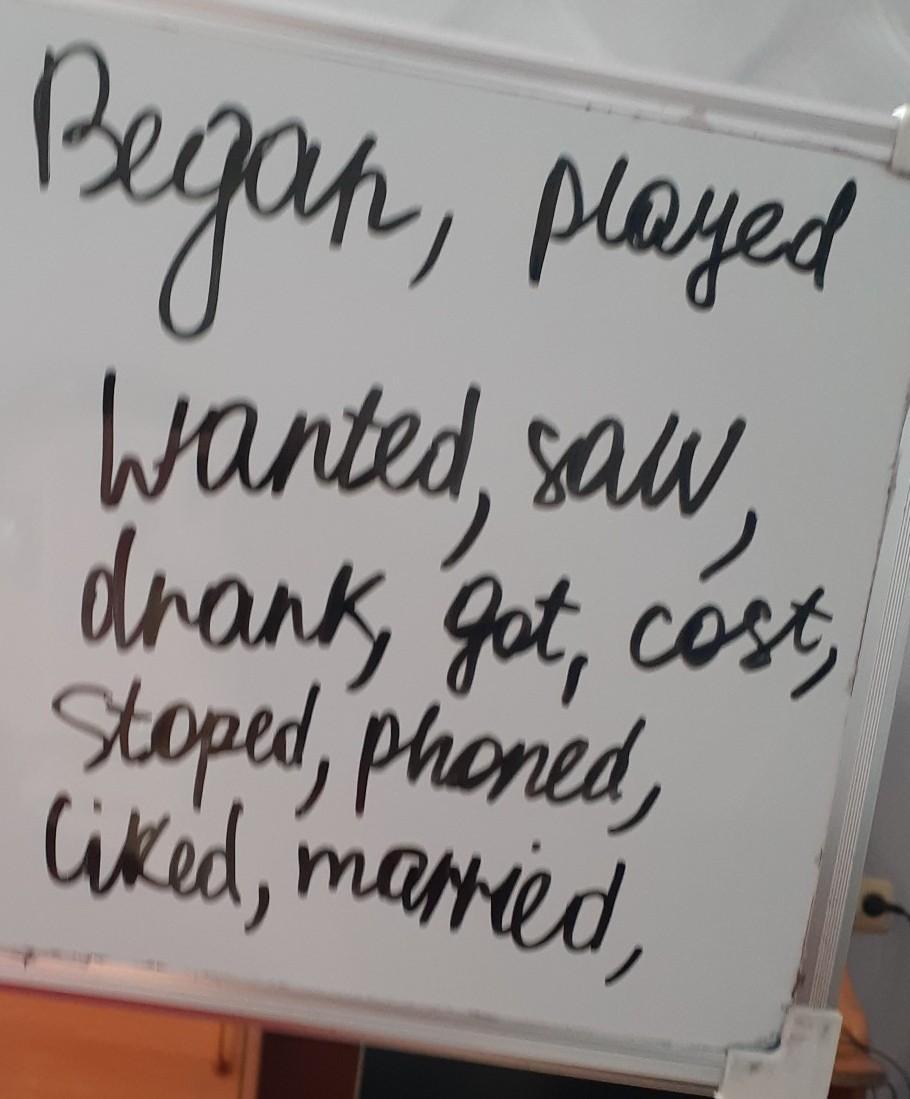 Began, played
Wanted, saw,
drank, got, cost,
Stoped, phoned,
liked, married,